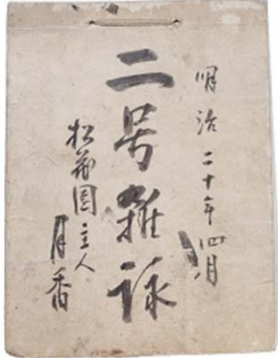 明治二十年四月
二号雜詠
松翁園主人
月香